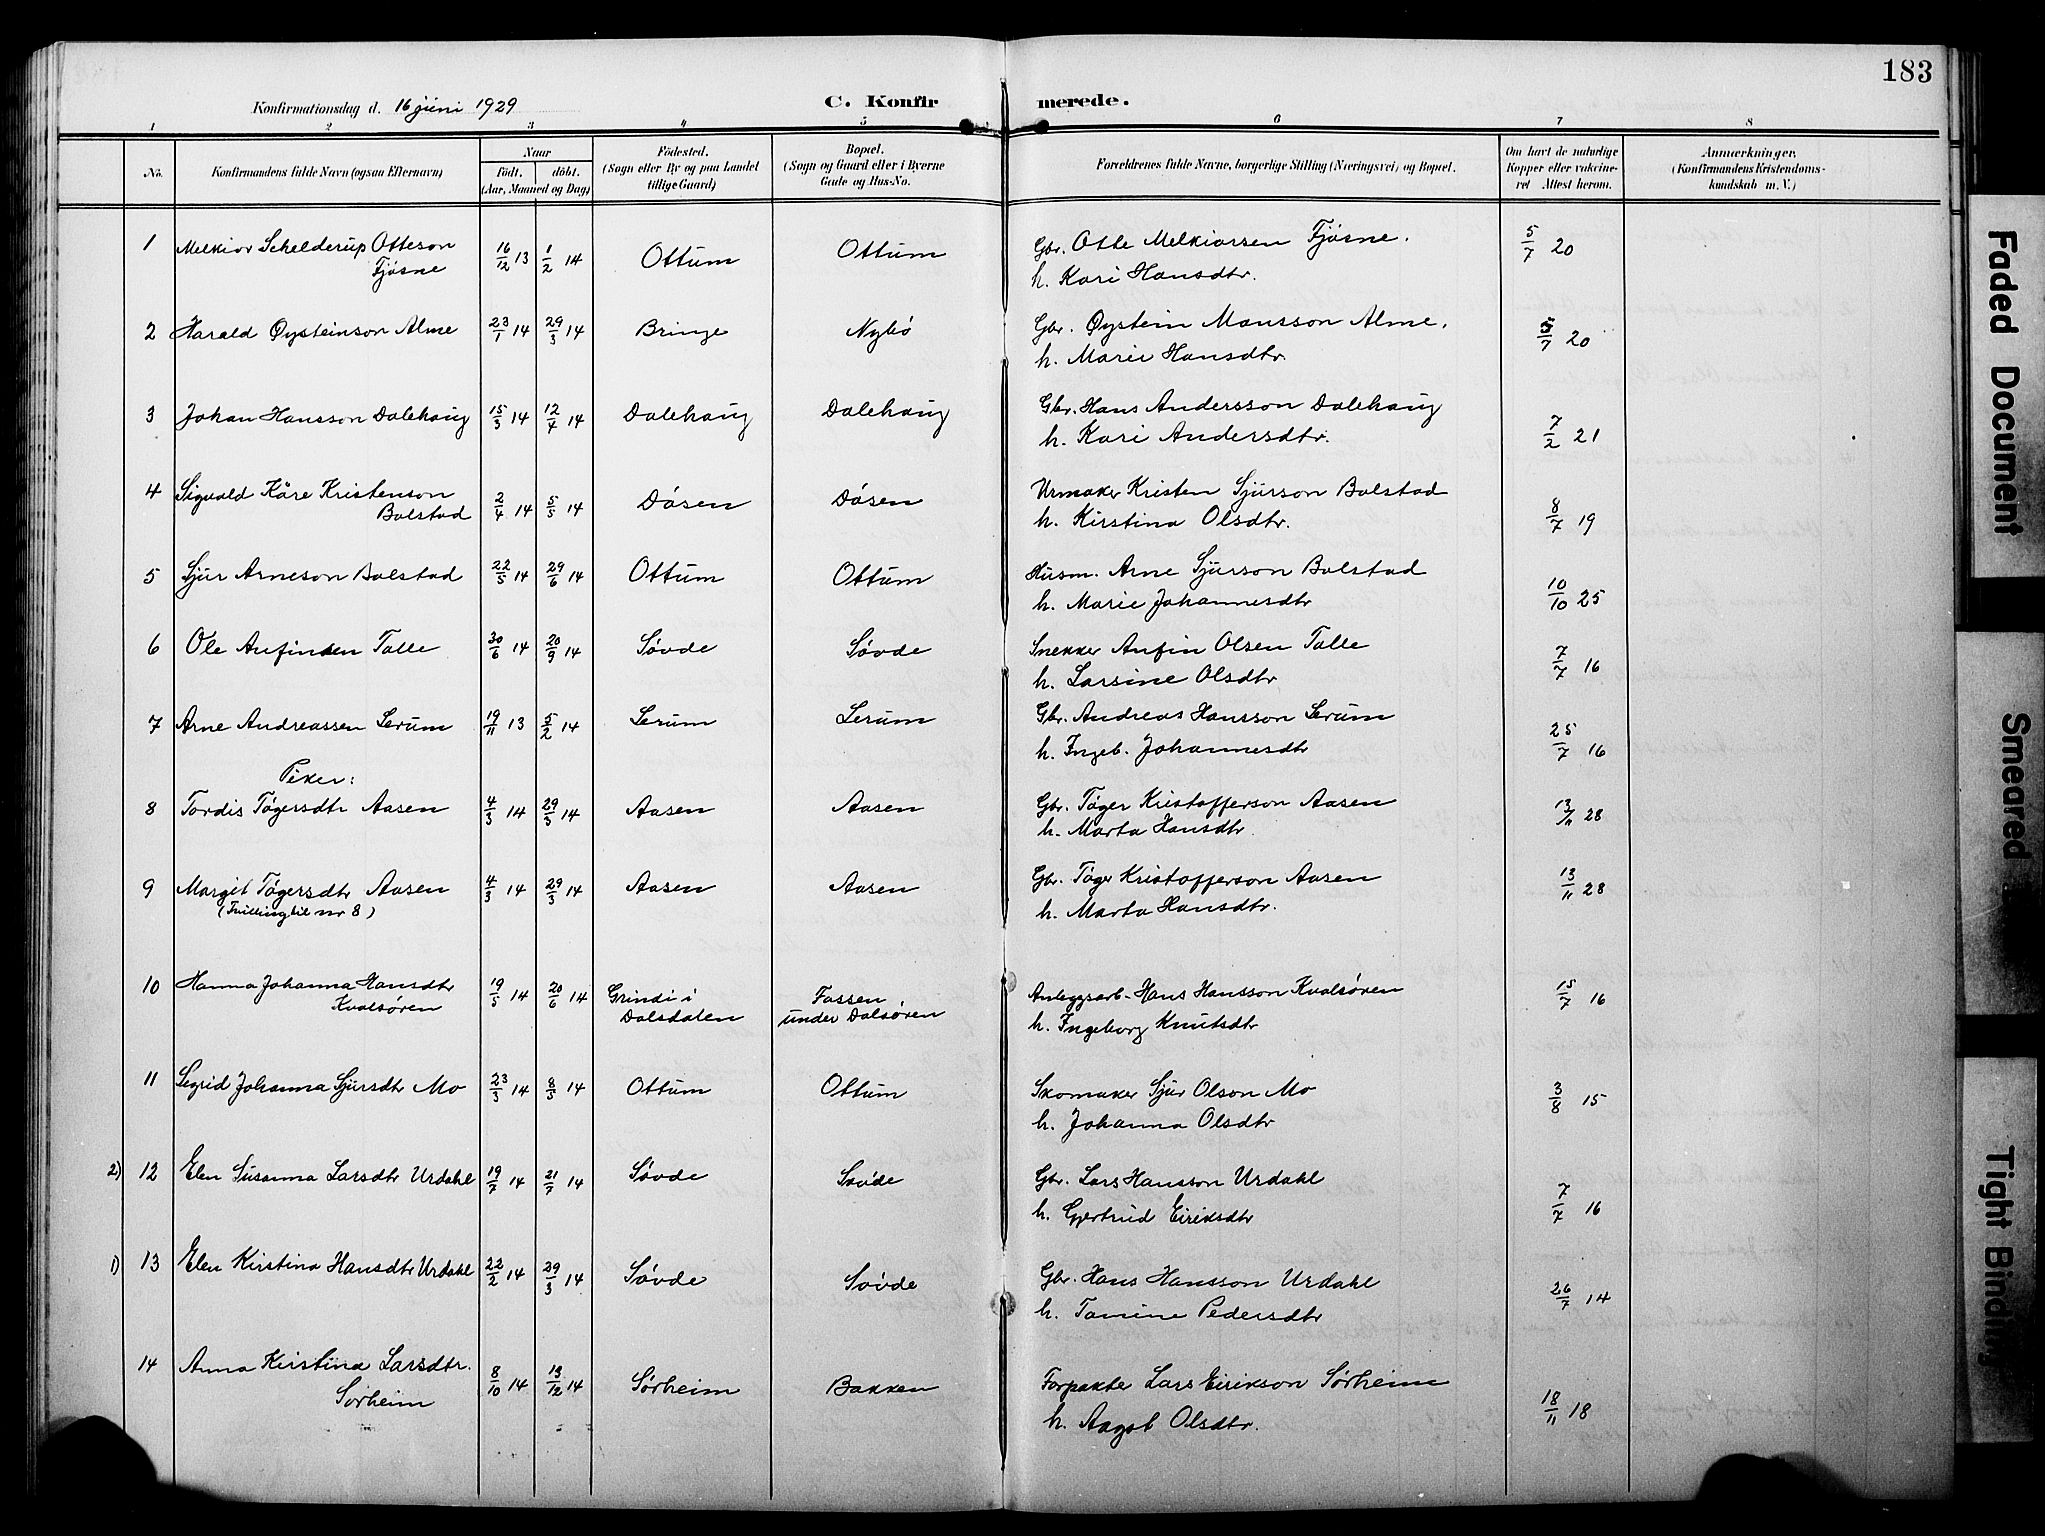 183
Konfirmationsdag d. 16 juni 1929
C. Konfirmerede.
1 2 3 4 5 6 7 8
No.
Konfirmandens fulde Navn (ogsaa Efternavn)
Naar
født. døbt.
(Aar, Maaned og Dag)
Fødested.
(Sogn eller By og paa Landet
tillige Gaard)
Bopæl.
(Sogn og Gaard eller i Byerne
Gade og Hus-No.
Forældrenes fulde Navne, borgerlige Stilling (Næringsvei) og Bopæl.
Om havt de naturlige
Kopper eller vakcine-
ret Attest herom.
Anmærkninger.
(Konfirmandens Kristendoms-
kundskab m. V.)
1 Melkior Schelderup Otteson 16/12 13 1/2 14 Ottum Ottum Gbr. Otte Melkiorsen Fjøsne. 5/7 20
Fjøsne h. Kari Hansdtr.
2 Harald Øysteinson Alme 23/1 14 29/3 14 Bringe Nybø Gbr. Øystein Monsson Alme. 5/7 20
h. Marie Hansdtr
3 Johan Hansson Dalehaug 15/3 14 12/4 14 Dalehaug Dalehaug Gbr. Hans Andersson Dalehaug
h. Kari Andersdtr. 7/2 21
4 Sigvald Kåre Kristenson Urmaker Kristen Sjurson Bolstad
Bolstad 2/4 14 5/5 14 Døsen Døsen h. Kirstina Olsdtr. 8/7 19
5 Sjur Arneson Bolstad 22/5 14 29/6 14 Ottum Ottum Husm. Arne Sjurson Bolstad
h. Marie Johannesdtr 10/10 25
6 Ole Anfinsen Talle 30/6 14 20/9 14 Søvde Søvde Snekker Anfin Olsen Talle
h. Larsine Olsdtr 7/7 16
7 Arne Andreassen Lerum 19/11 13 5/2 14 Lerum Lerum Gbr. Andreas Hansson Lerum
h. Ingeb. Johannesdtr 25/7 16
Piker:
8 Tordis Tøgersdtr Aasen 4/3 14 29/3 14 Aasen Aasen Gbr. Tøger Kristofferson Aasen 13/11 28
h. Marta Hansdtr
9 Margit Tøgersdtr Aasen 4/3 14 29/3 14 Aasen Aasen Gbr. Tøger Kristofferson Aasen 13/11 28
(Tvilling til nr 8) h. Marta Hansdtr.
10 Hanna Johanna Hansdtr 19/5 14 20/6 14 Grindi i Fossen Anleggsarb. Hans Hansson Kvalsøren 15/7 16
Kvalsøren Dalsdalen under Dalsøren h. Ingeborg Knutsdtr
11 Sigrid Johanna Sjursdtr Mo 23/3 14 8/5 14 Ottum Ottum Skomaker Sjur Olson Mo 3/8 15
h. Johanna Olsdtr
2) 12 Elen Susanna Larsdtr Urdahl 19/7 14 21/7 14 Søvde Søvde Gbr. Lars Hansson Urdahl
h. Gjertrud Eiriksdtr 7/7 16
1) 13 Elen Kirstina Hansdtr Urdahl 22/2 14 29/3 14 Søvde Søvde Gbr. Hans Hansson Urdahl
h. Tomine Pedersdtr 26/7 14
14 Anna Kirstina Larsdtr. 8/10 14 13/12 14 Sørheim Bakken Forpakter Lars Eirikson Sørheim
Sørheim h. Aagot Olsdtr. 18/11 18
Faded Document
Smeared
Tight Binding